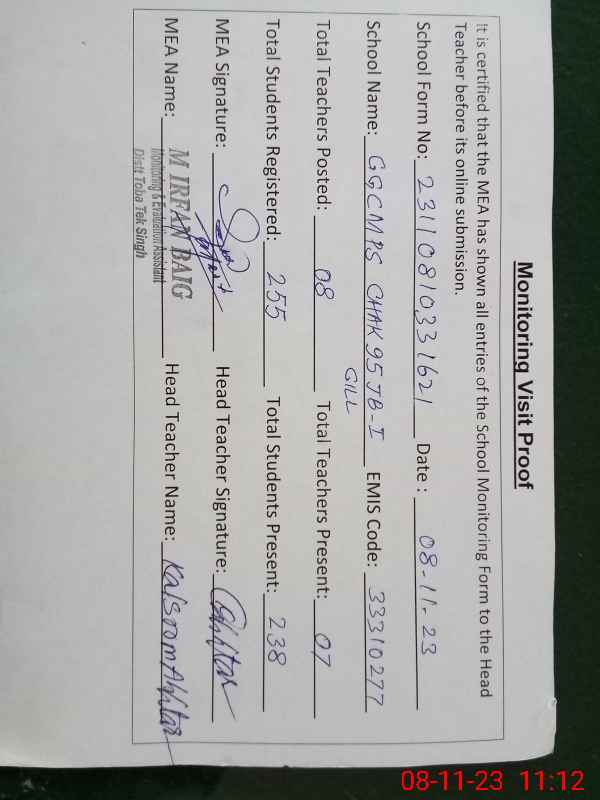 Monitoring Visit Proof
It is certified that the MEA has shown all entries of the School Monitoring Form to the Head
Teacher before its online submission.
School Form No: 23110810331621 Date : 08-11-23
School Name: GGCMPS CHAK 95 JB-I EMIS Code: 33310277
GILL
Total Teachers Posted: 08 Total Teachers Present: 07
Total Students Registered: 255 Total Students Present: 238
MEA Signature: Head Teacher Signature:
MEA Name: M IRFAN BAIG Head Teacher Name: Kalsoom Akhtar
Monitoring & Evaluation Assistant
Distt Toba Tek Singh
08-11-23 11:12